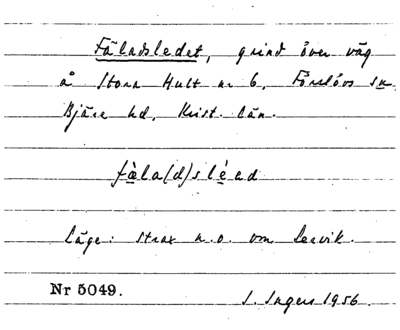 Fäladsledet, grind över väg
å Stora Hult nr 6, Förslövs sn
Bjäre hd, Krist. län.
fäla(d)sléad
Läge: strax n.o. om Lervik.
Nr 5049.
I. Ingers 1956.